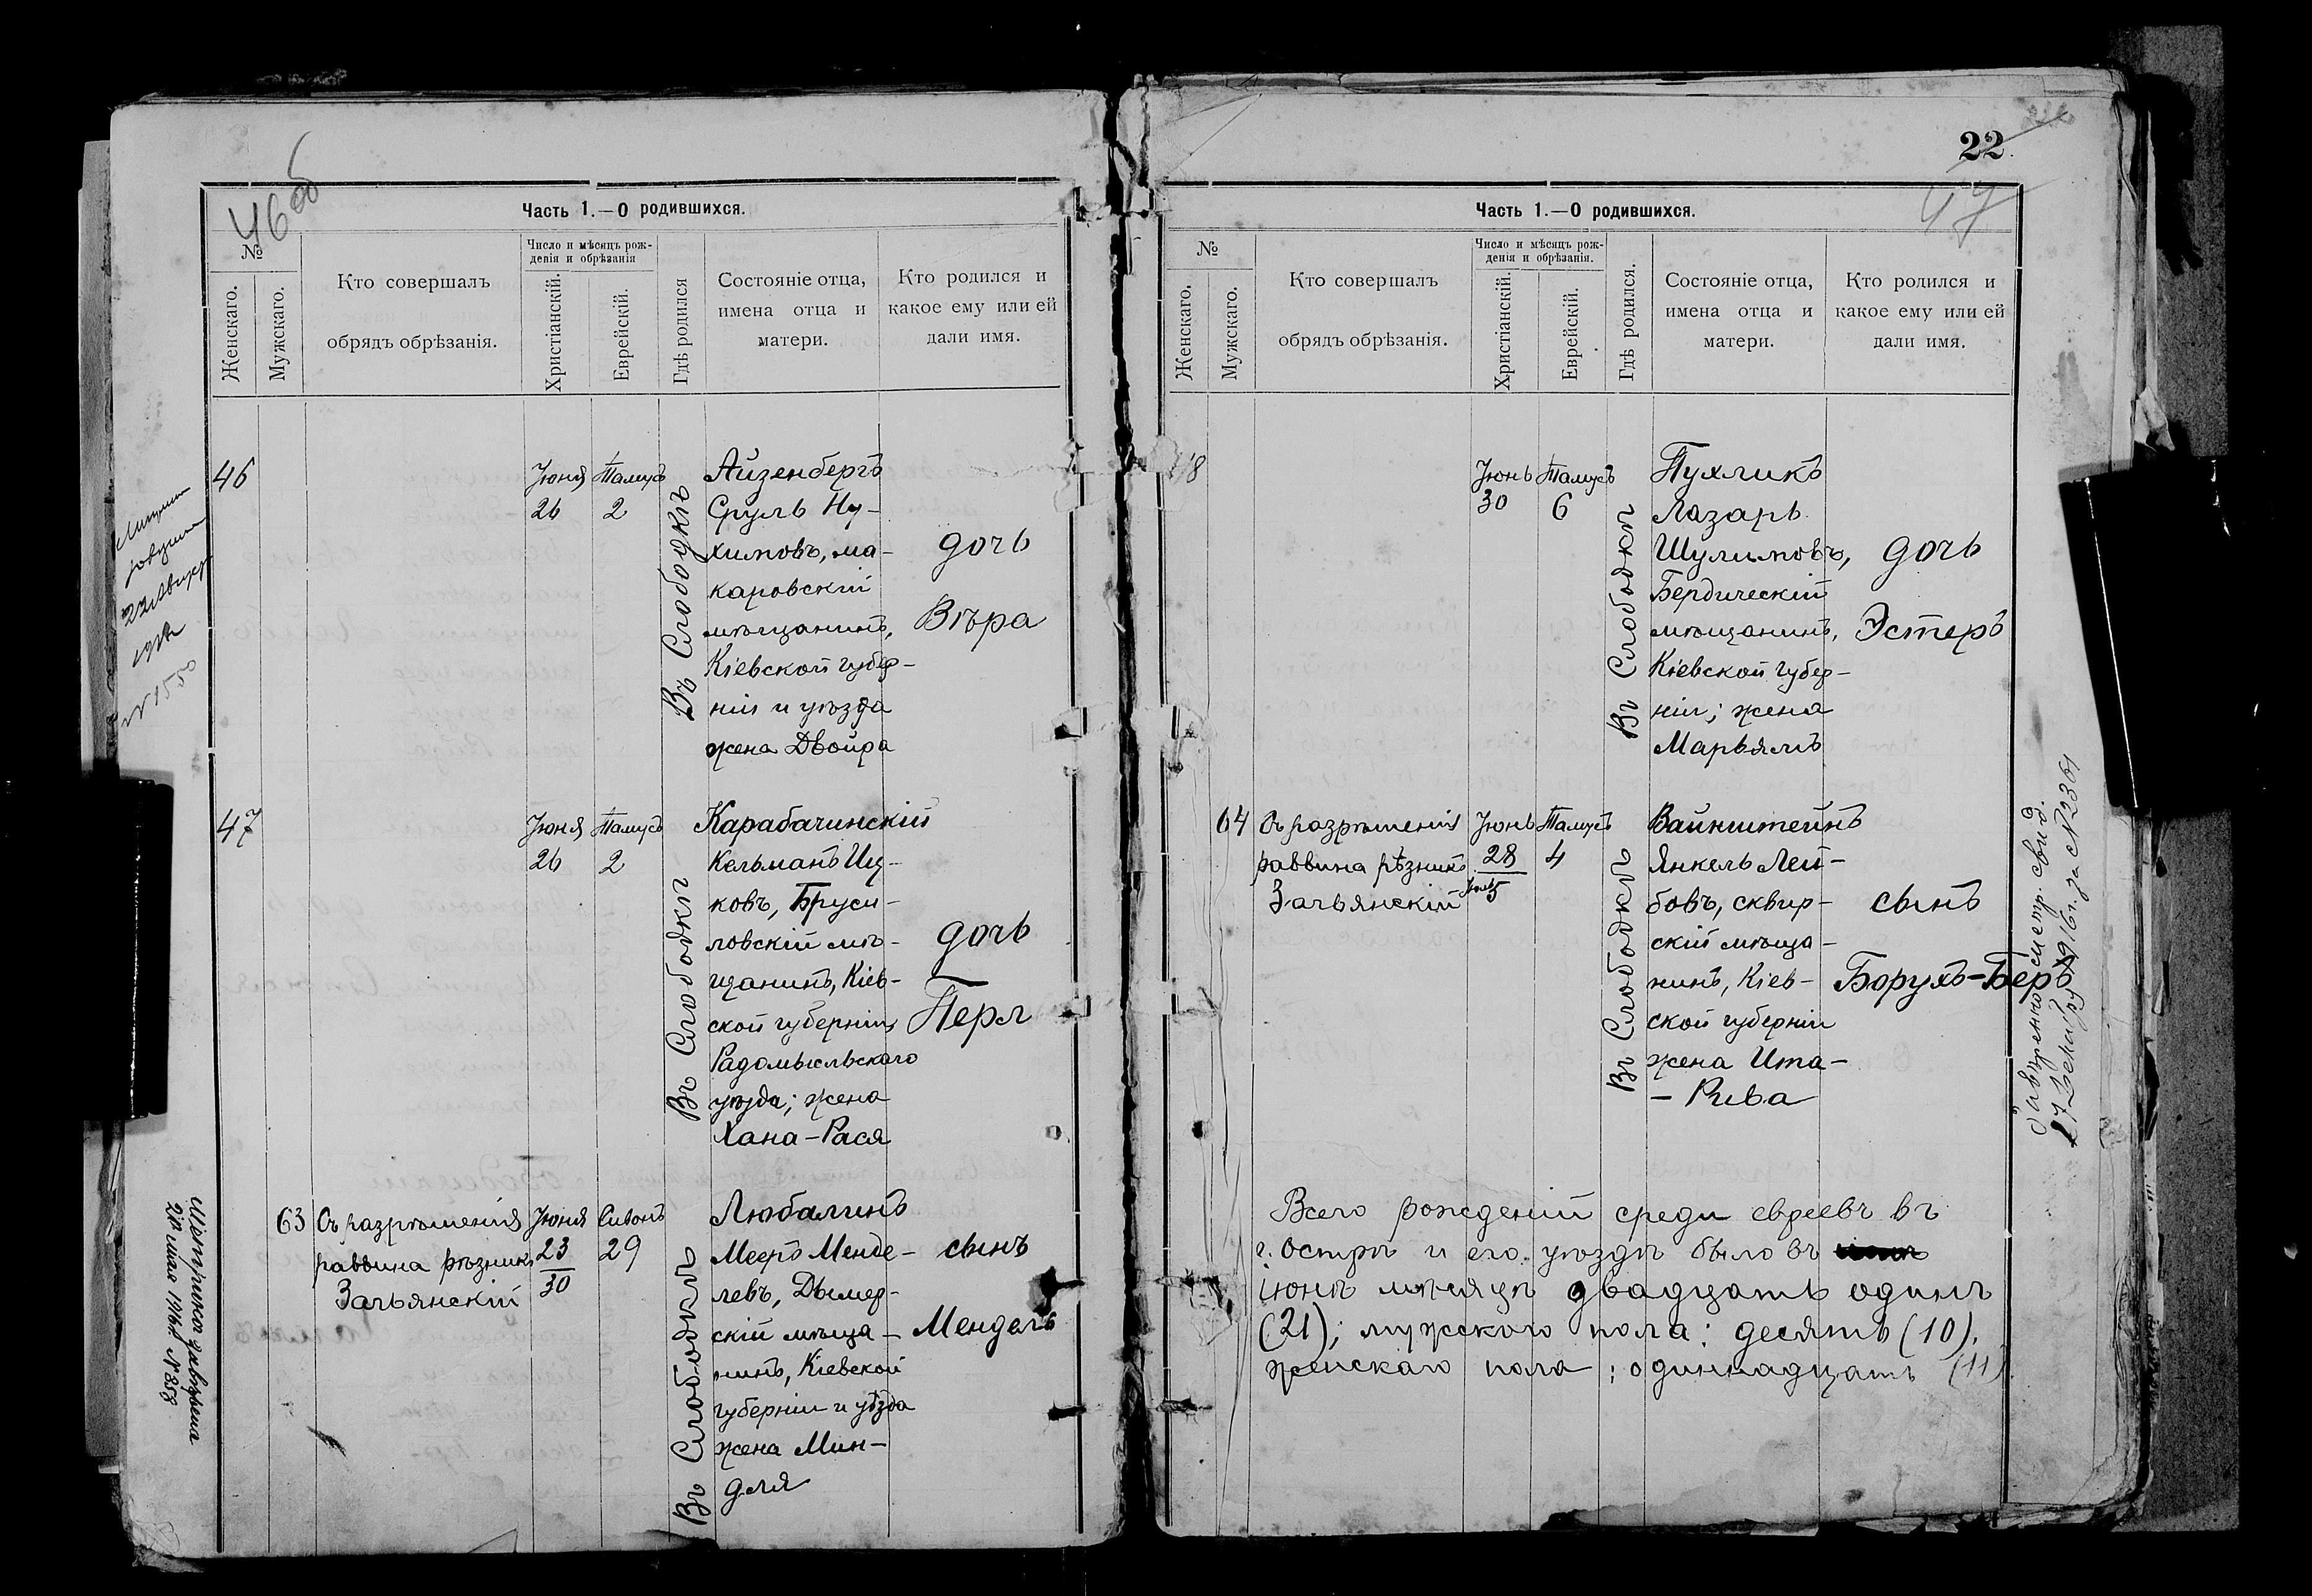 46 об
Часть 1.—О родившихся.
№
Женскаго.
Мужскаго.
Кто совершалъ
обрядъ обрѣзанія.
Число и мѣсяцъ рож-
денія и обрѣзанія
Христіанскій.
Еврейскій.
Гдѣ родился
Состояніе отца,
имена отца и
матери.
Кто родился и
какое ему или ей
дали имя.
46
Іюня
26
Тамусъ
2
Въ Слободкѣ
Айзенбергъ
Сруль Ну-
химовъ, ма-
каровскій
мѣщанинъ,
Кіевской губер-
ніи и уѣзда
жена Двойра
дочь
Вѣра
22
1916
№ 155
47
Іюня
26
Тамусъ
2
Въ Слободкѣ
Карабачинскій
Кельманъ Иц-
ковъ, Бруси-
ловскій мѣ-
щанинъ, Кіев-
ской губерніи,
Радомысльскаго
уѣзда; жена
Хана-Рася
дочь
Перл
63
Съ разрѣшенія
раввина рѣзникъ
Зачьянскій
Іюня
23
30
Сивонъ
29
Въ Слободкѣ
Любалинъ
Мееръ Менде-
левъ, Дымер-
скій мѣща-
нинъ, Кіевской
губерніи и уѣзда
жена Мин-
для
сынъ
Мендель
Метрика завѣрена
мая 1916 г. № 853
22
47
Часть 1.—О родившихся.
№
Женскаго.
Мужскаго.
Кто совершалъ
обрядъ обрѣзанія.
Число и мѣсяцъ рож-
денія и обрѣзанія.
Христіанскій.
Еврейскій.
Гдѣ родился.
Состояніе отца,
имена отца и
матери.
Кто родился и
какое ему или ей
дали имя.
48
Іюнь
30
Тамусъ
6
Въ Слободкѣ
Пухликъ
Лазарь
Шулимовъ,
Бердическій
мѣщанинъ,
Кіевской губер-
ніи; жена
Марьямъ
дочь
Эстеръ
64
Съ разрѣшенія
раввина рѣзникъ
Зачьянскій
Іюнь
28
Іюль 5
Тамусъ
4
Въ Слободкѣ
Вайнштейнъ
Янкель Лей-
бовъ, сквир-
скій мѣща-
нинъ, Кіев-
ской губерніи
жена Ита-
-Рива
сынъ
Борухъ-Беръ
Завѣрено метр. свид.
1916 г. за № 2361
Всего рожденій среди евреевъ въ
г. Острѣ и его уѣздѣ было въ
іюнѣ мѣсяцѣ двадцать одинъ
(21); мужского пола: десять (10),
женскаго пола: одиннадцать (11)